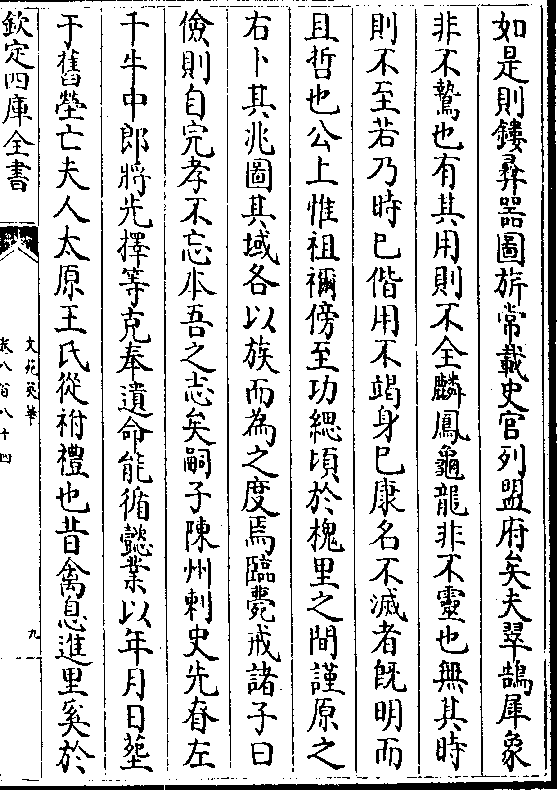 如是則鏤彝器圖旂常載史官列盟府矣夫翠鵠犀象
非不驁也有其用則不全麟鳳龜龍非不靈也無其時
則不至若乃時已偕用不竭身已康名不滅者既明而
且哲也公上惟祖禰傍至功緦頃於槐里之間謹原之
右卜其兆圖其域各以族而為之度焉臨薨戒諸子曰
儉則自完孝不忘本吾之志矣嗣子陳州刺史先眘左
千牛中郎將光擇等克奉遺命能循懿業以年月日塟
于舊塋亡夫人太原王氏從祔禮也昔禽息進里奚於
欽定四庫全書
文苑英華
卷八百八十四
九